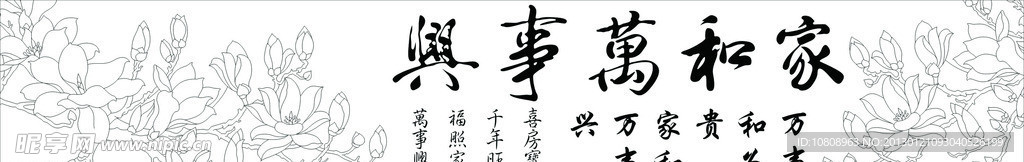 家和萬事興
万
和
贵
家和
万
兴
喜房寶
千年旺
福照家
萬事興
昵享网 www.nipic.cn